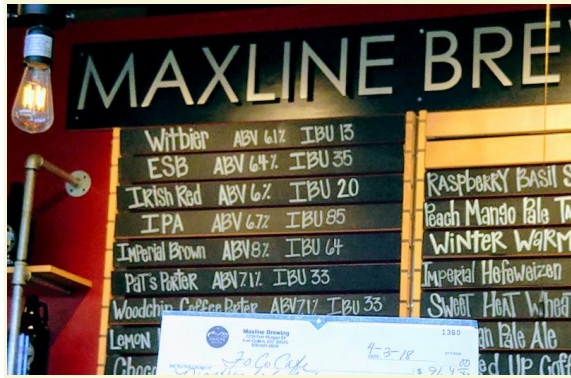 MAXLINE BRE
Witbier ABV 6.1% IBU 13
ESB ABV 6.4% IBU 35
Irish Red ABV 6% IBU 20
IPA ABV 6.7% IBU 85
Imperial Brown ABV 8% IBU 64
Pat's Porter ABV 7.1% IBU 33
Woodchip Coffee Porter ABV 7.1% IBU 33
Lemon
Choco
Raspberry Basil S
Peach Mango Pale Ta
Winter Warm
Imperial Hefeweizen
Sweet Heat Wheat
an Pale Ale
ed Up Coff
Maxline Brewing
1360
4-3-18
FoCo Cafe
$